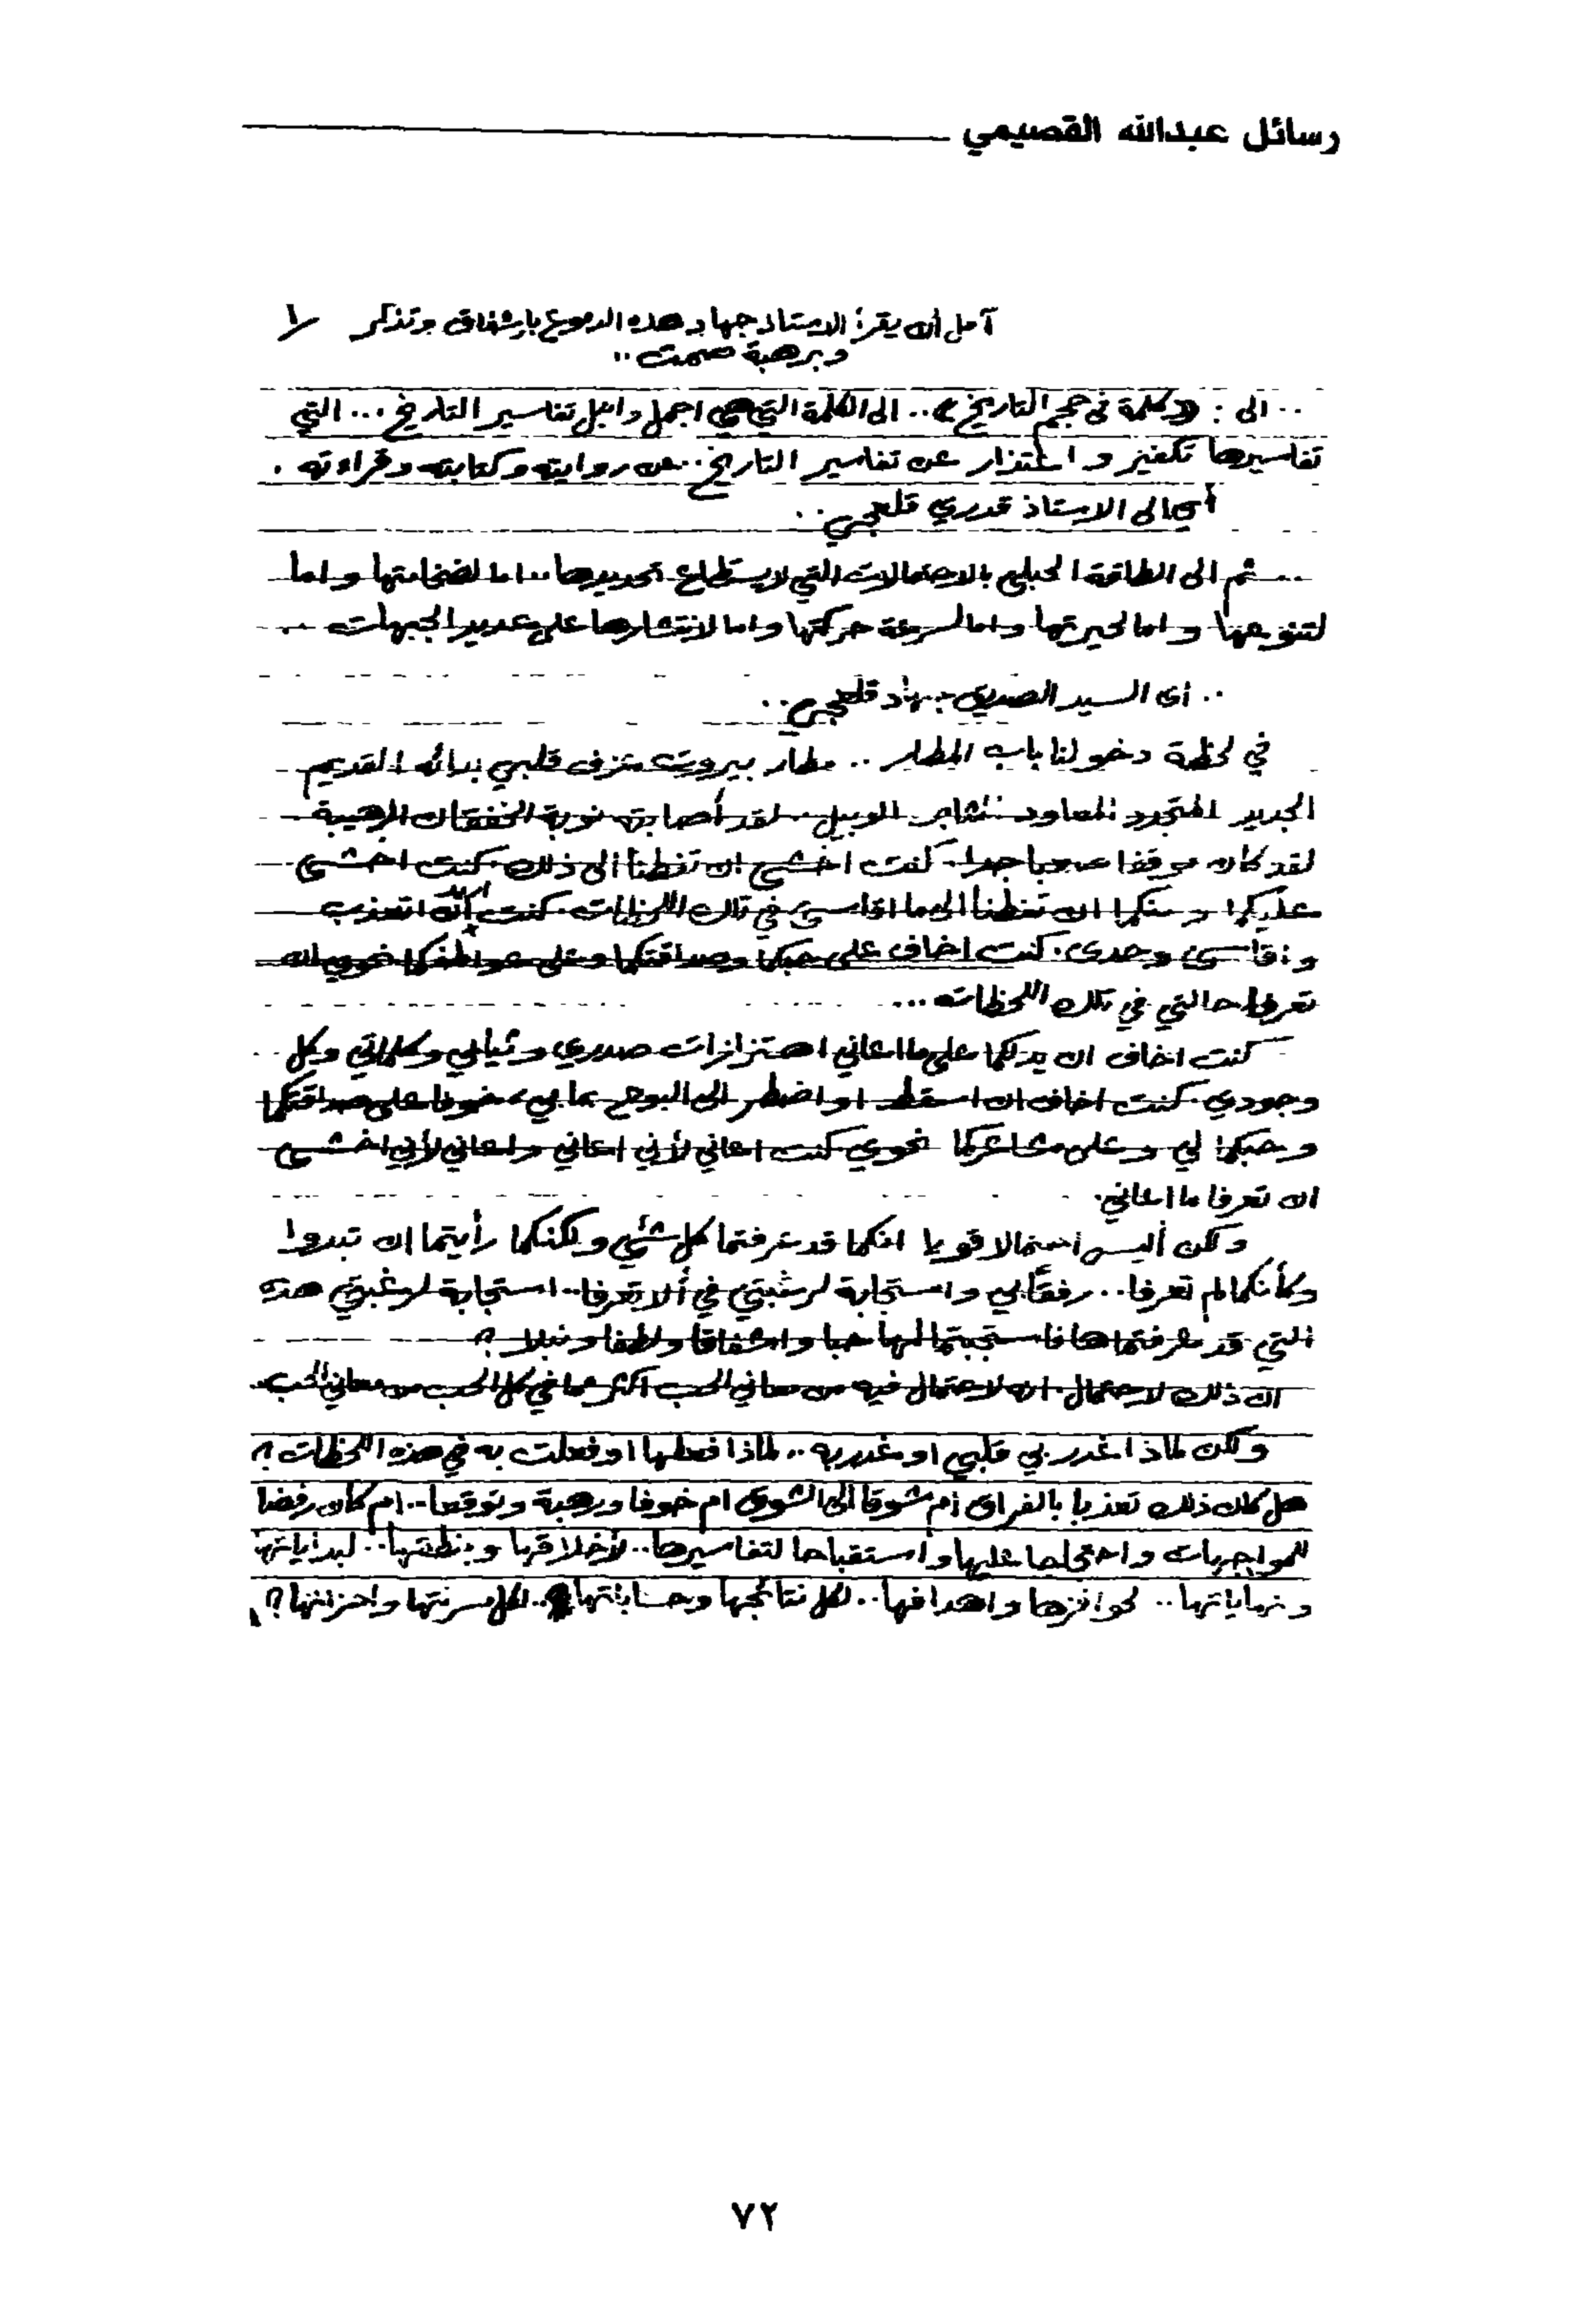 رسائل عبدالله القصيمي
آمل أن يقرأ الاستاذ جهاد هذه الدموع باشفاق وتذكر ١/
وبرهبة صمت..
.. الى : «كلمة في حجم التاريخ» .. الى الكلمة التي هي اجمل وانبل تفاسير التاريخ ... التي
تفاسيرها تكفير واعتذار عن تفاسير التاريخ .. عن روايته وكتابته وقراءته .
أي الى الاستاذ قدري قلعجي ..
.. ثم الى الطاقة الحبلى بالاحتمالات التي لا يستطاع تحديدها .. اما لضخامتها واما
لتنوعها واما لحيرتها واما لسرعة حركتها واما لانتشارها على عديد الجبهات ..
.. اى السيد الصديق جهاد قلعجي ..
في لحظة دخولنا باب المطار .. مطار بيروت عزف قلبي بدائه القديم
الجديد المتجدد المعاود الوبيل .. لقد أصابته نوبة الخفقان الرهيبة .
لقد كان موقفا صعبا جدا . كنت اخشى ان تفطنا الى ذلك . كنت اخشى
عليكما ومنكما ان تفطنا الى ما اقاسي في تلك اللحظات . كنت اريد ان اتعذب
واقاسي وحدى . كنت اخاف على حبكما وصداقتكما وعلى عواطفكما نحوي ان
تعرفا حالتي في تلك اللحظات ...
كنت اخاف ان يدلكما على ما اعاني اهتزازات صدري وثيابي وكلماتي وكل
وجودي . كنت اخاف ان اسقط او اضطر الى البوح بما بي، خوفا على صداقتكما
وحبكما لي وعلى مشاعركما نحوي . كنت اعاني لأني اعاني واعاني لأني اخشى
ان تعرفا ما اعاني .
ولكن أليس احتمالا قويا انكما قد عرفتما كل شيء ولكنكما رأيتما ان تبدوا
وكأنكما لم تعرفا .. رفقا بي واستجابة لرغبتي في ألا تعرفا .. استجابة لرغبتي هذه
التي قد عرفتماها فاستجبتما لها حبا واشفاقا ولطفا ونبلا ؟
ان ذلك لاحتمال . انه لاحتمال فيه من معاني الحب اكثر مما في كل الحب من معاني الحب .
ولكن لماذا غدر بي قلبي او غدر به .. لماذا فعلها او فعلت به في هذه اللحظات ؟
هل كان ذلك تعذبا بالفراق أم شوقا الى الشوق ام خوفا ورهبة وتوقعا .. ام كان رفضا
للمواجهات واحتجاجا عليها واستقباحا لتفاسيرها .. لأخلاقها ومنطقها .. لبداياتها
ونهاياتها .. لحوافزها واهدافها .. لكل نتائجها وحساباتها .. لكل مسراتها واحزانها ؟
٧٢